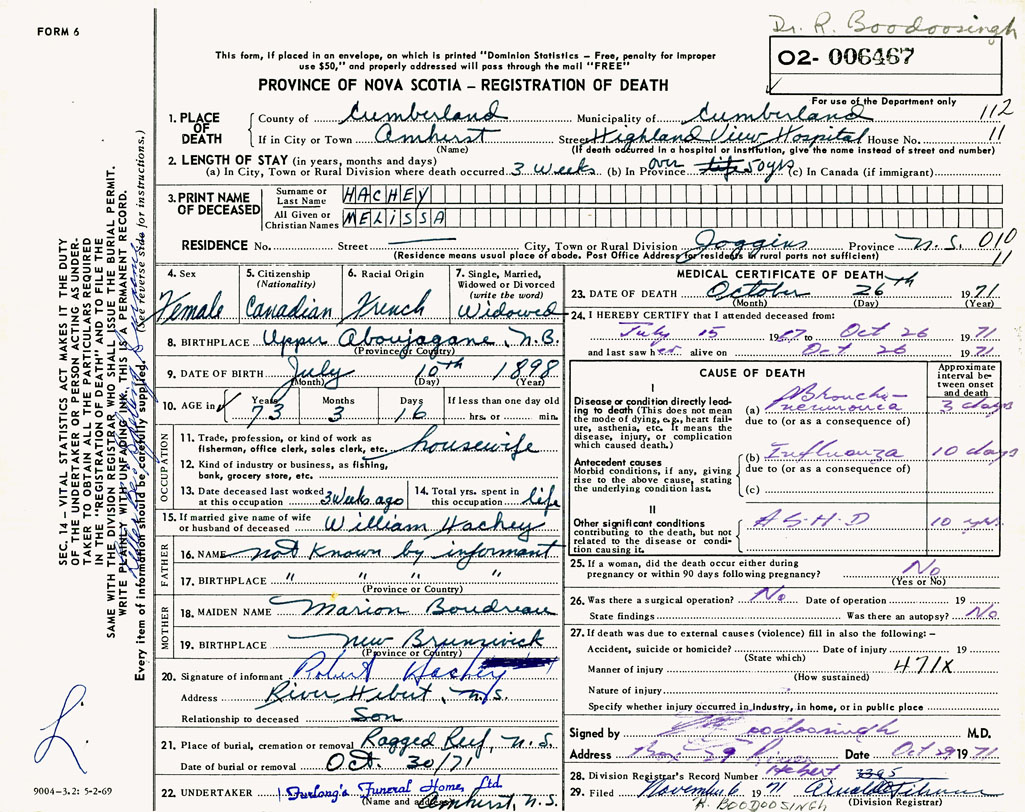 FORM 6
Dr. R. Boodoosingh
This form, if placed in an envelope, on which is printed "Dominion Statistics – Free, penalty for improper
use $50," and properly addressed will pass through the mail "FREE"
02- 006467
PROVINCE OF NOVA SCOTIA – REGISTRATION OF DEATH
For use of the Department only
1. PLACE OF DEATH County of Cumberland Municipality of Cumberland 112
If in City or Town Amhurst Street Highland View Hospital House No. 11
(Name) (If death occurred in a hospital or institution, give the name instead of street and number)
2. LENGTH OF STAY (in years, months and days)
(a) In City, Town or Rural Division where death occurred 3 Weeks (b) In Province life over 50 yrs (c) In Canada (if immigrant)
3. PRINT NAME OF DECEASED Surname or Last Name HACHEY
All Given or Christian Names MELISSA
RESIDENCE No. Street City, Town or Rural Division Joggins Province N.S. 010
(Residence means usual place of abode. Post Office Address for residents in rural parts not sufficient) 11
4. Sex 5. Citizenship (Nationality) 6. Racial Origin 7. Single, Married, Widowed or Divorced (write the word)
Female Canadian French Widowed
8. BIRTHPLACE Upper Aboujagane, N.B.
(Province or Country)
9. DATE OF BIRTH July 10th 1898
(Month) (Day) (Year)
10. AGE in Years Months Days If less than one day old
73 3 16 hrs. or min.
OCCUPATION
11. Trade, profession, or kind of work as fisherman, office clerk, sales clerk, etc. housewife
12. Kind of industry or business, as fishing, bank, grocery store, etc.
13. Date deceased last worked at this occupation 3 Weeks ago 14. Total yrs. spent in this occupation life
15. If married give name of wife or husband of deceased William Hachey
FATHER
16. NAME not known by informant
17. BIRTHPLACE " " " "
(Province or Country)
MOTHER
18. MAIDEN NAME Marion Boudreau
19. BIRTHPLACE New Brunswick
(Province or Country)
20. Signature of informant Robert Hachey
Address River Hebert, N.S.
Relationship to deceased Son
21. Place of burial, cremation or removal Ragged Reef, N.S.
Date of burial or removal Oct. 30/71
22. UNDERTAKER Furlong's Funeral Home, Ltd.
(Name and address) Amhurst, N.S.
MEDICAL CERTIFICATE OF DEATH
23. DATE OF DEATH October 26th 1971
(Month) (Day) (Year)
24. I HEREBY CERTIFY that I attended deceased from:
July 15 1967 to Oct 26 1971
and last saw her alive on Oct 26 1971
CAUSE OF DEATH
Approximate interval between onset and death
I
Disease or condition directly leading to death (This does not mean the mode of dying, e.g., heart failure, asthenia, etc. It means the disease, injury, or complication which caused death.)
(a) Broncho-pneumonia 3 days
due to (or as a consequence of)
Antecedent causes
Morbid conditions, if any, giving rise to the above cause, stating the underlying condition last.
(b) Influenza 10 days
due to (or as a consequence of)
(c)
II
Other significant conditions contributing to the death, but not related to the disease or condition causing it.
A S H D 10 yrs.
25. If a woman, did the death occur either during pregnancy or within 90 days following pregnancy? No
(Yes or No)
26. Was there a surgical operation? No Date of operation 19
State findings Was there an autopsy? No
27. If death was due to external causes (violence) fill in also the following: –
Accident, suicide or homicide? Date of injury 19
(State which)
Manner of injury 471X
(How sustained)
Nature of injury
Specify whether injury occurred in industry, in home, or in public place
Signed by Boodoosingh M.D.
Address Box 29 R. Hebert Date Oct 29 1971
28. Division Registrar's Record Number 3395
29. Filed November 6 1971
(Division Registrar)
R. BOODOOSINGH
SEC. 14 – VITAL STATISTICS ACT MAKES IT THE DUTY
OF THE UNDERTAKER OR PERSON ACTING AS UNDER-
TAKER TO OBTAIN ALL THE PARTICULARS REQUIRED
IN THE "REGISTRATION OF DEATH" AND TO FILE THE
SAME WITH THE DIVISION REGISTRAR WHO SHALL ISSUE THE BURIAL PERMIT.
WRITE PLAINLY WITH UNFADING INK, THIS IS A PERMANENT RECORD.
Every item of information should be carefully supplied. (See reverse side for instructions.)
9004-3.2: 5-2-69